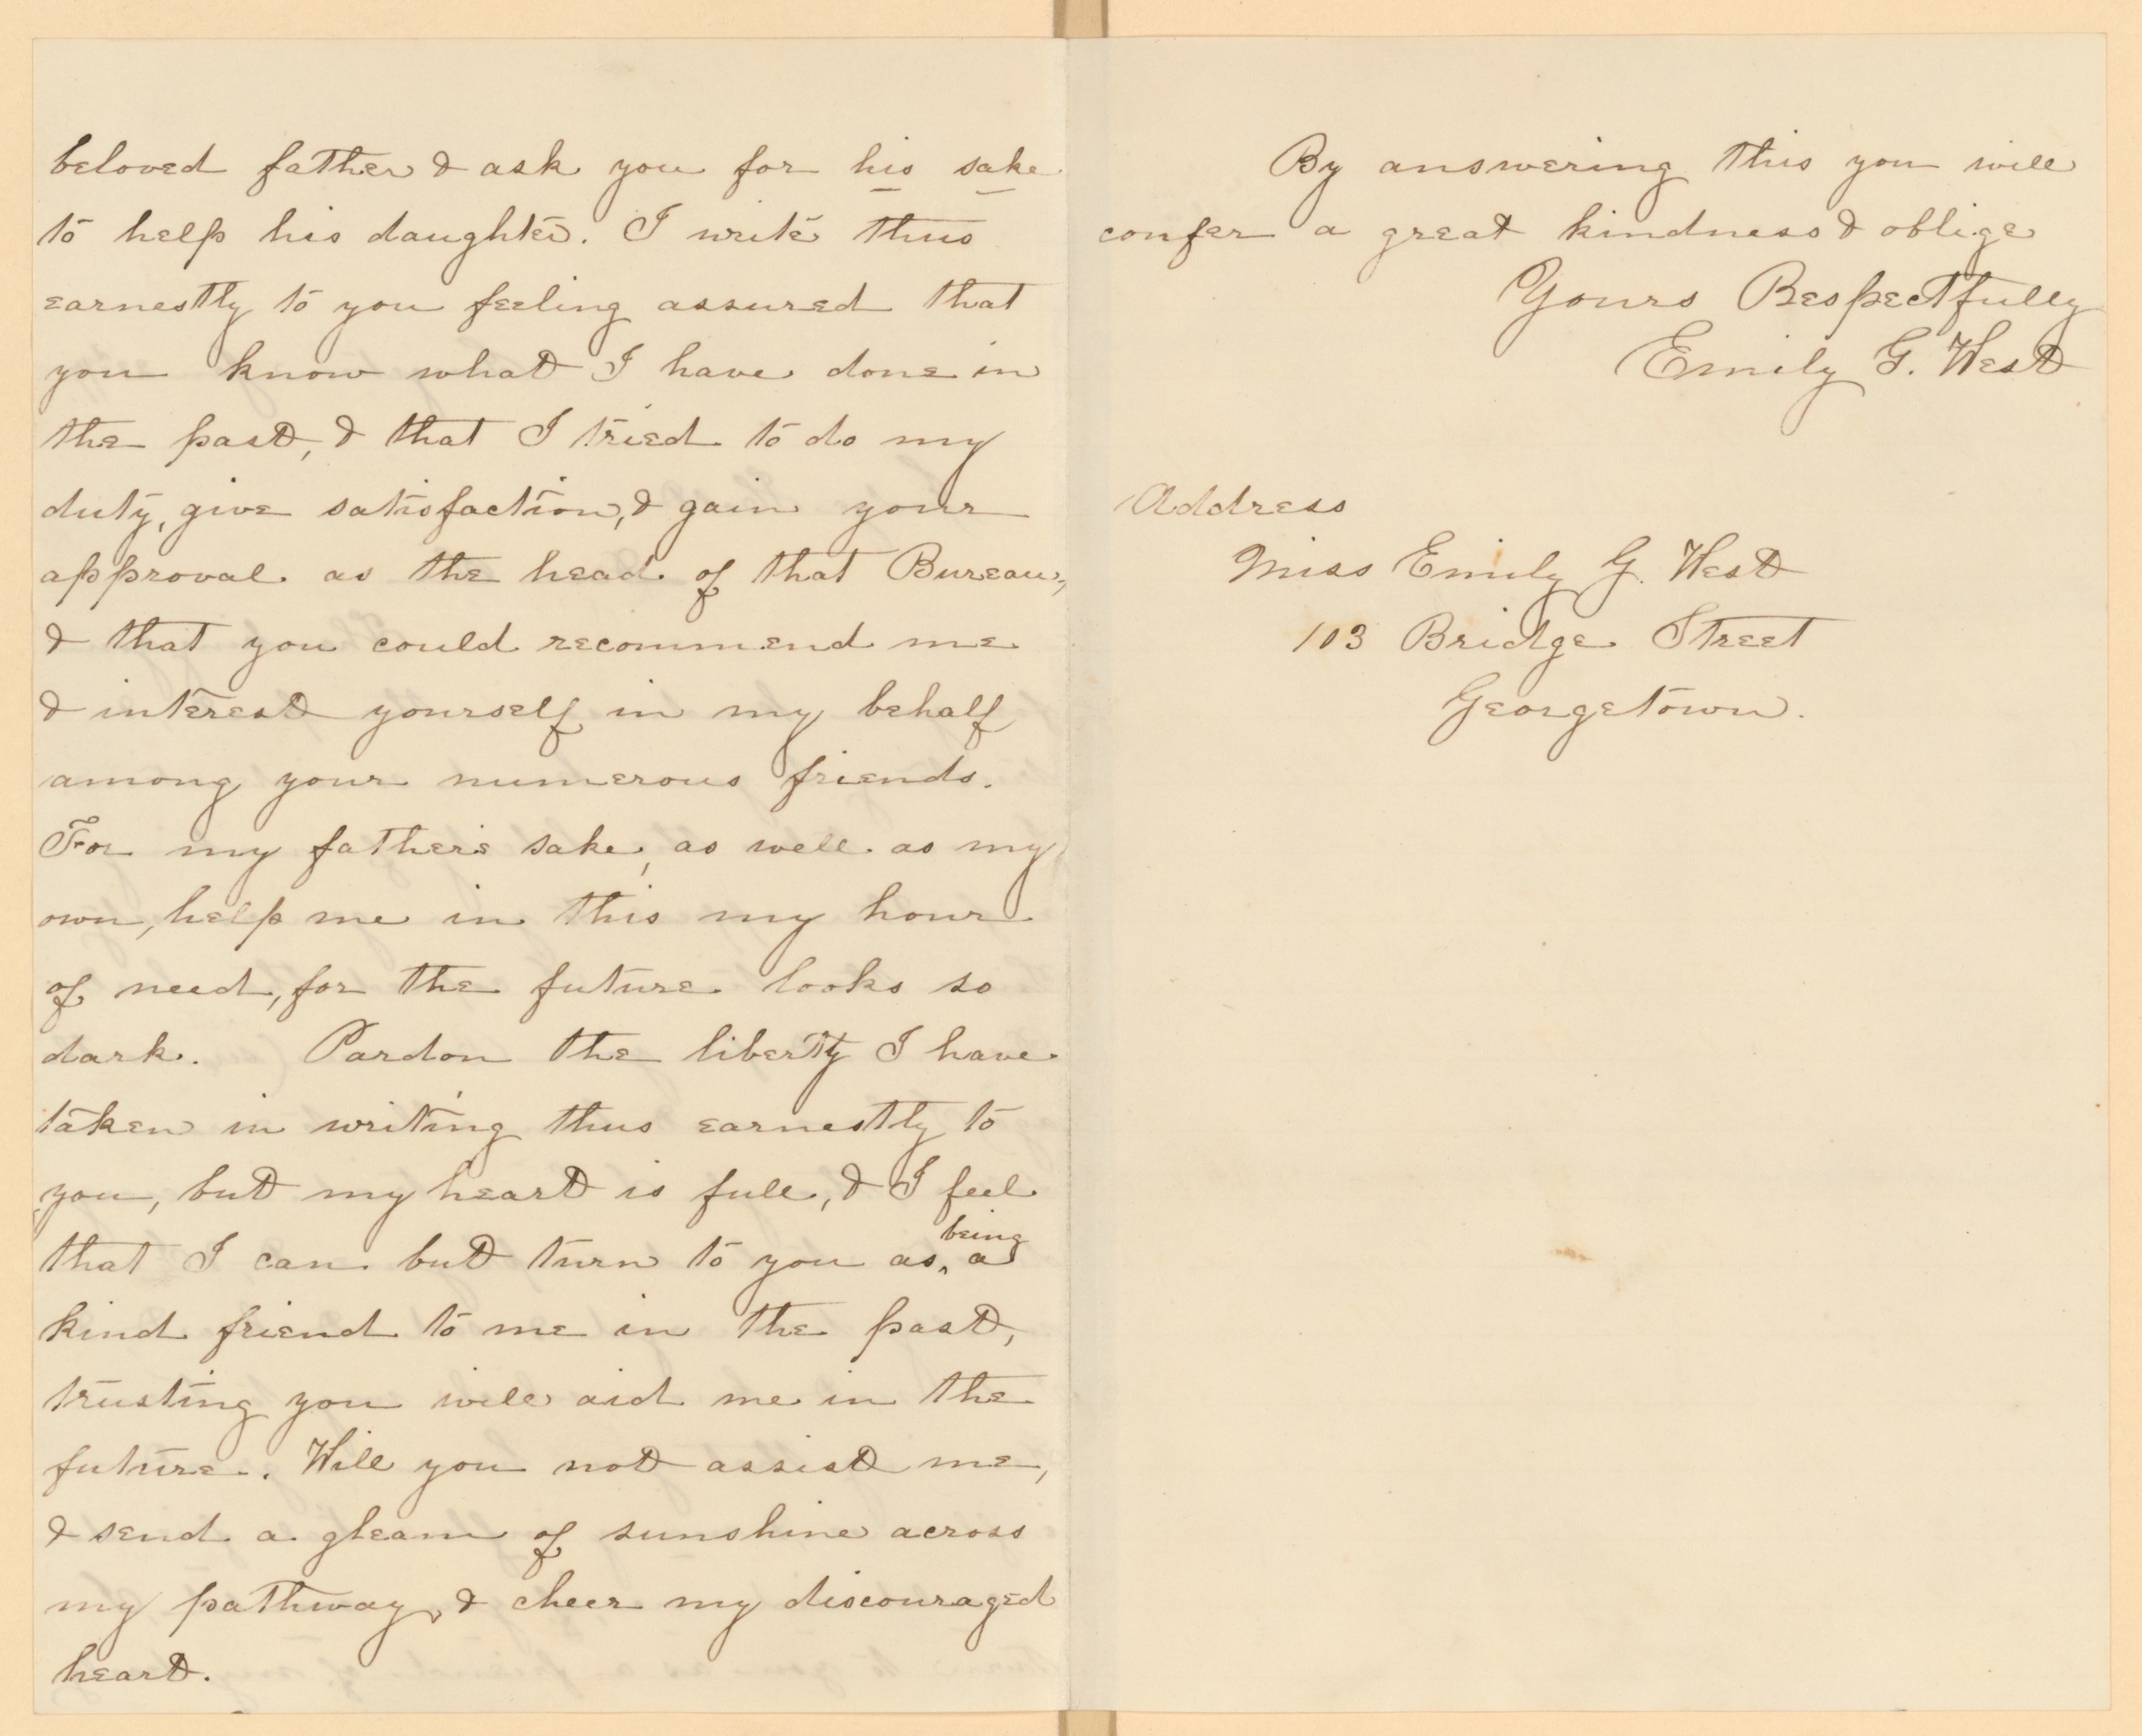 beloved father & ask you for his sake
to help his daughter. I write thus
earnestly to you feeling assured that
you know what I have done in
the past, & that I tried to do my
duty, give satisfaction, & gain your
approval as the head of that Bureau,
& that you could recommend me
& interest yourself in my behalf
among your numerous friends.
For my father's sake, as well as my
own, help me in this my hour
of need, for the future looks so
dark. Pardon the liberty I have
taken in writing thus earnestly to
you, but my heart is full, & I feel
being
that I can but turn to you as ‸ a
kind friend to me in the past,
trusting you will aid me in the
future. Will you not assist me,
& send a gleam of sunshine across
my pathway, & cheer my discouraged
heart.
By answering this you will
confer a great kindness & oblige
Yours Respectfully
Emily G. West
Address
Miss Emily G. West
103 Bridge Street
Georgetown.